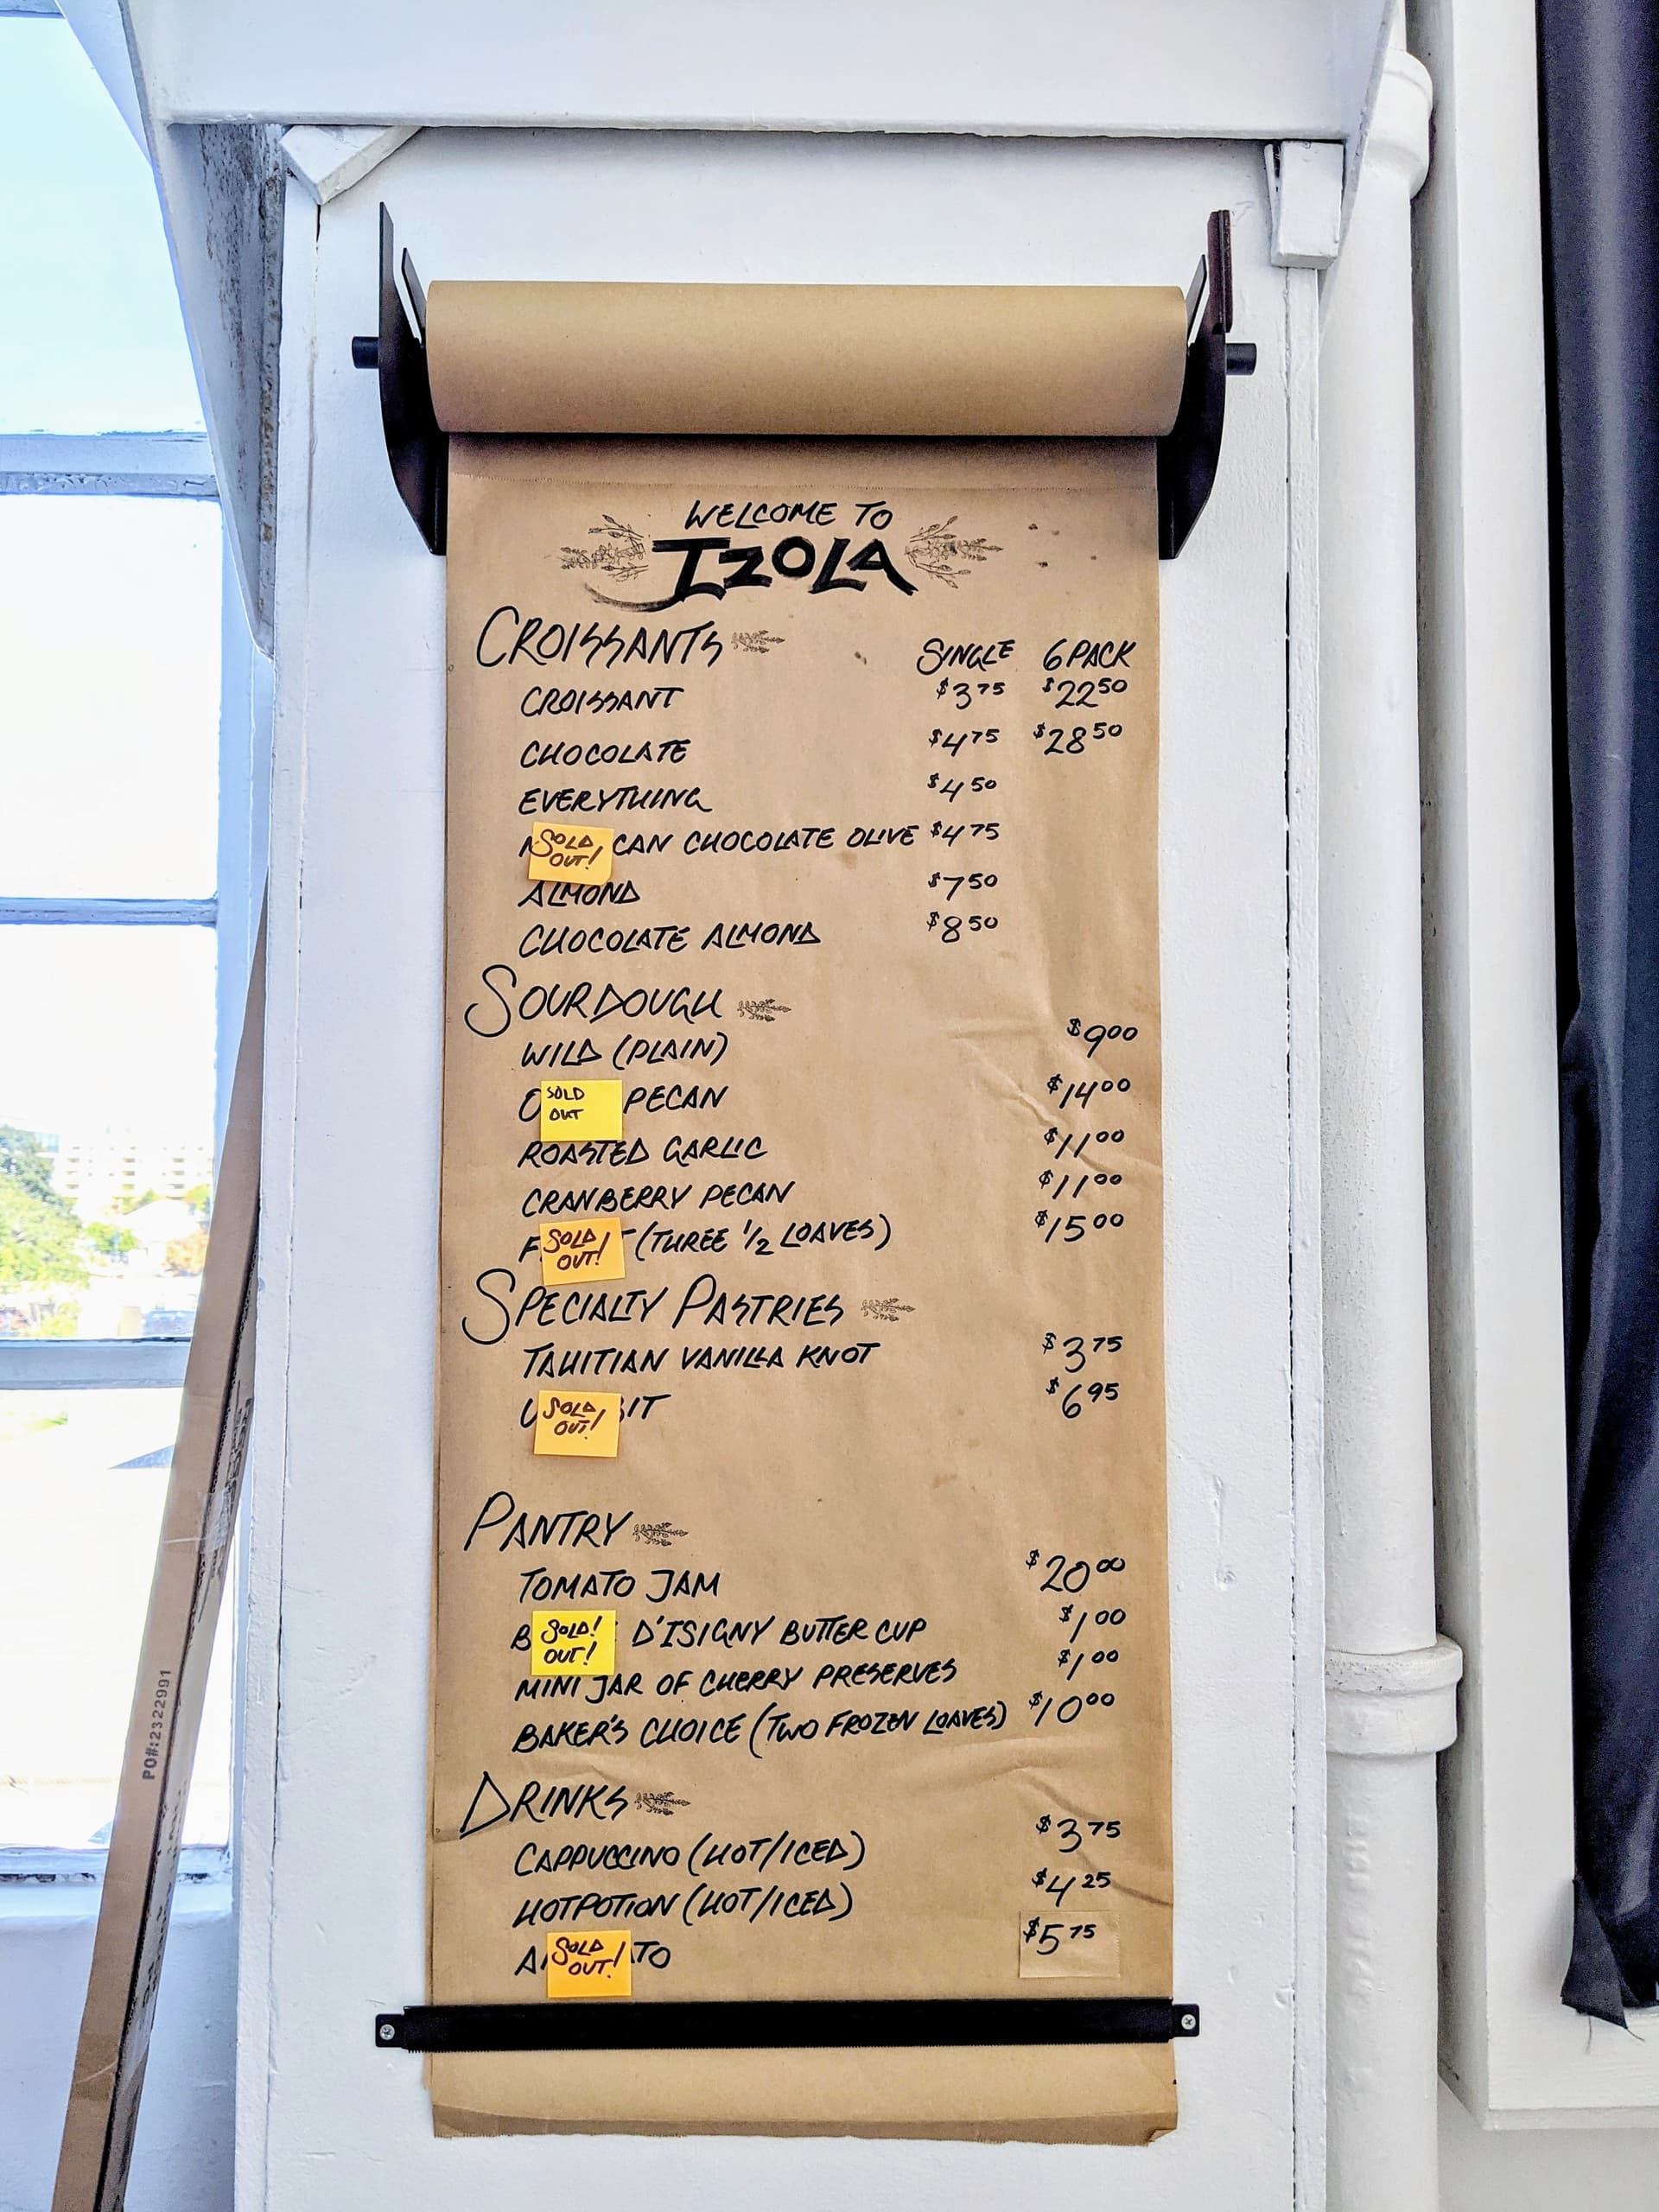 WELCOME TO
IZOLA
CROISSANTS
SINGLE 6PACK
CROISSANT $3.75 $22.50
CHOCOLATE $4.75 $28.50
EVERYTHING $4.50
SOLD OUT! CAN CHOCOLATE OLIVE $4.75
ALMOND $7.50
CHOCOLATE ALMOND $8.50
SOURDOUGH
WILD (PLAIN) $9.00
SOLD OUT PECAN $14.00
ROASTED GARLIC $11.00
CRANBERRY PECAN $11.00
SOLD OUT! (THREE 1/2 LOAVES) $15.00
SPECIALTY PASTRIES
TAHITIAN VANILLA KNOT $3.75
SOLD OUT! $6.95
PANTRY
TOMATO JAM $20.00
SOLD! OUT! D'ISIGNY BUTTER CUP $1.00
MINI JAR OF CHERRY PRESERVES $1.00
BAKER'S CHOICE (TWO FROZEN LOAVES) $10.00
DRINKS
CAPPUCCINO (HOT/ICED) $3.75
HOTPOTION (HOT/ICED) $4.25
SOLD OUT! $5.75
PO#:2322991